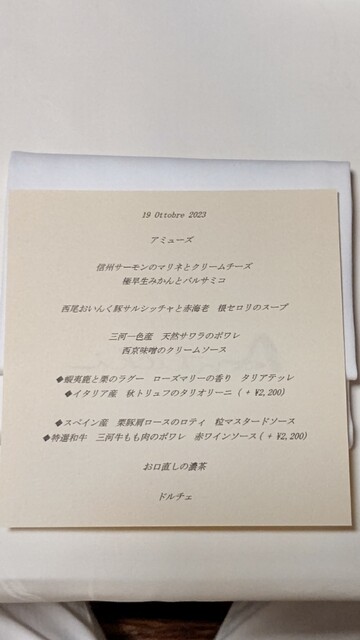 19 Ottobre 2023
アミューズ
信州サーモンのマリネとクリームチーズ
極早生みかんとバルサミコ
西尾おいんく豚サルシッチャと赤海老　根セロリのスープ
三河一色産　天然サワラのポワレ
西京味噌のクリームソース
◆蝦夷鹿と栗のラグー　ローズマリーの香り　タリアテッレ
◆イタリア産　秋トリュフのタリオリーニ (+ ¥2,200)
◆スペイン産　栗豚肩ロースのロティ　粒マスタードソース
◆特選和牛　三河牛もも肉のポワレ　赤ワインソース(+ ¥2,200)
お口直しの濃茶
ドルチェ